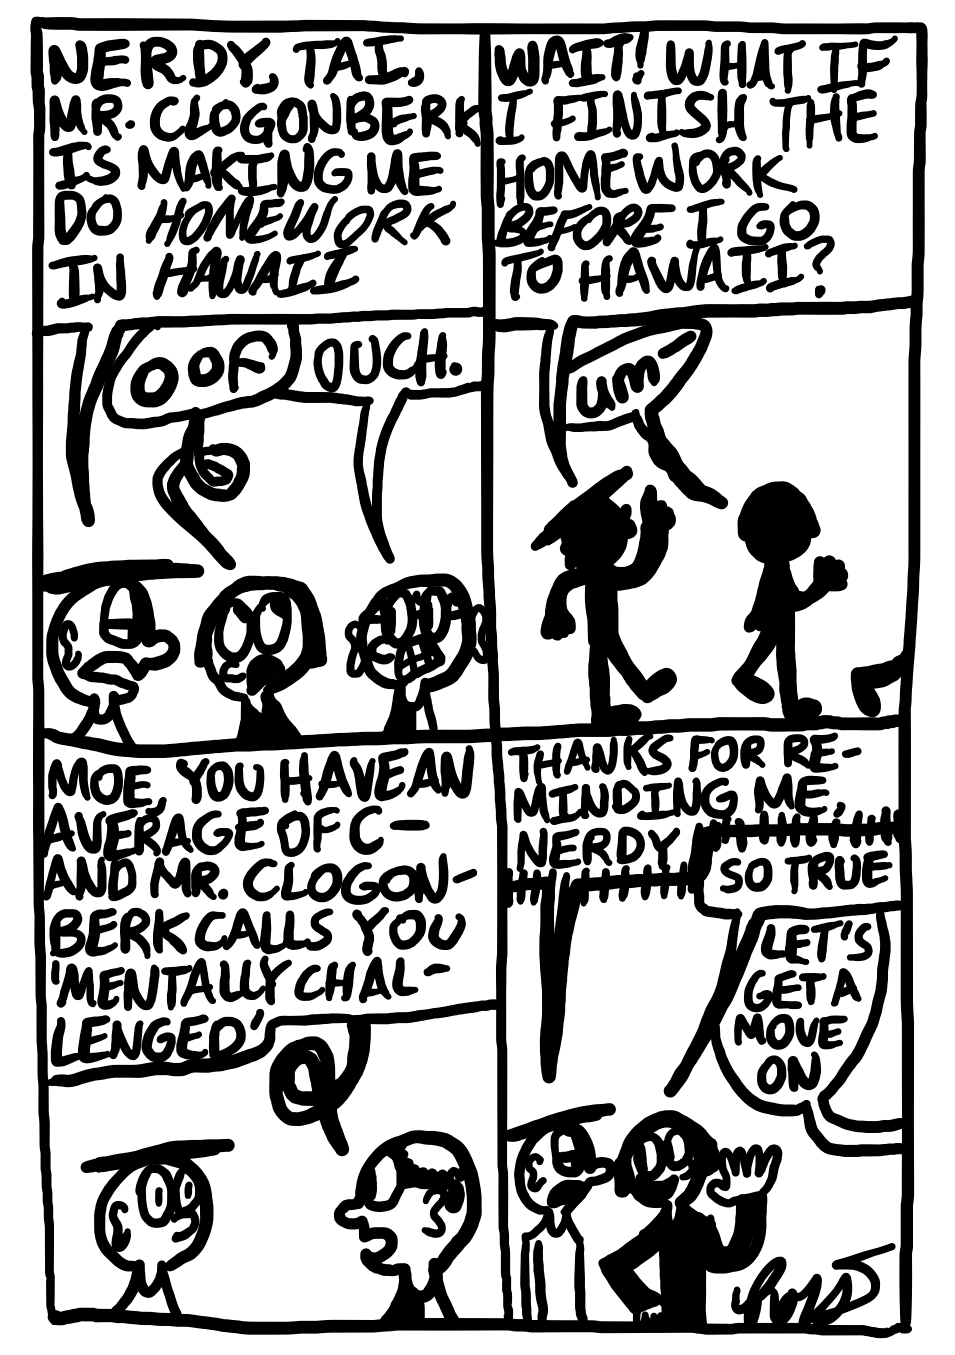 NERDY, TAI,
MR. CLOGONBERK
IS MAKING ME
DO HOMEWORK
IN HAWAII
OOF
OUCH.
WAIT! WHAT IF
I FINISH THE
HOMEWORK
BEFORE I GO
TO HAWAII?
UM-
MOE, YOU HAVE AN
AVERAGE OF C-
AND MR. CLOGON-
BERK CALLS YOU
'MENTALLY CHAL-
LENGED'
THANKS FOR RE-
MINDING ME,
NERDY
SO TRUE
LET'S
GET A
MOVE
ON